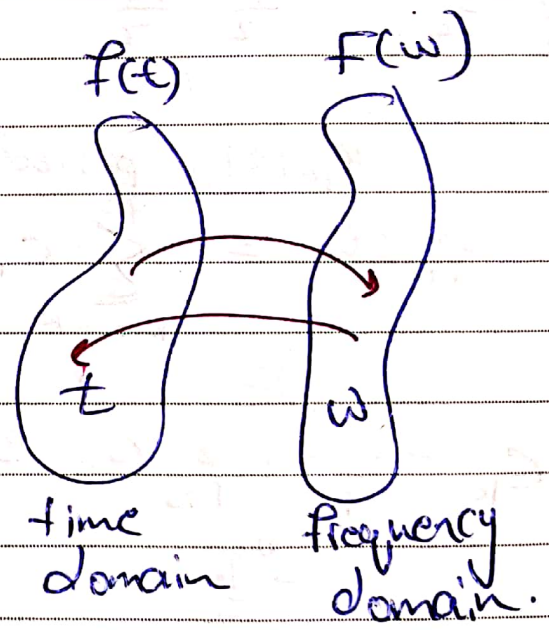 f(t)
F(iω)
t
ω
time
domain
frequency
domain.